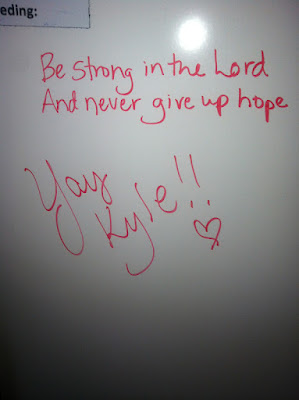 eeding:
Be strong in the Lord
And never give up hope
Yay
Kyle!!